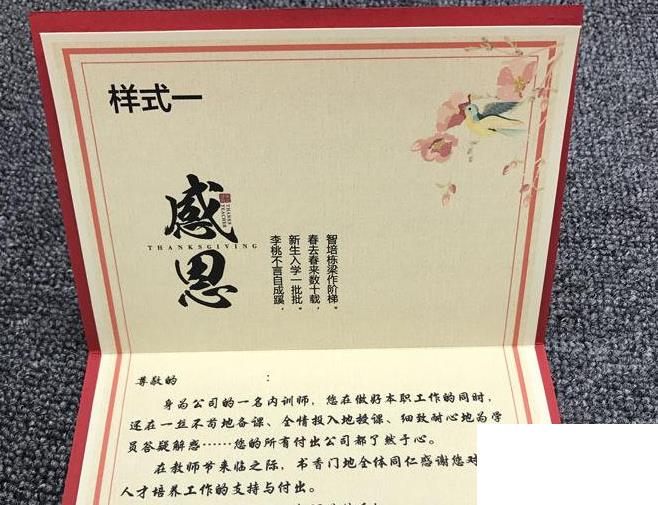 样式一
感恩
THANKS TEACHER
THANKSGIVING
智培栋梁作阶梯。
春去春来数十载，
新生入学一批批。
李桃不言自成蹊，
尊敬的：
身为公司的一名内训师，您在做好本职工作的同时，
还在一丝不苟地备课、全情投入地授课、细致耐心地为学
员答疑解惑……您的所有付出公司都了然于心。
在教师节来临之际，书香门地全体同仁感谢您对
人才培养工作的支持与付出。